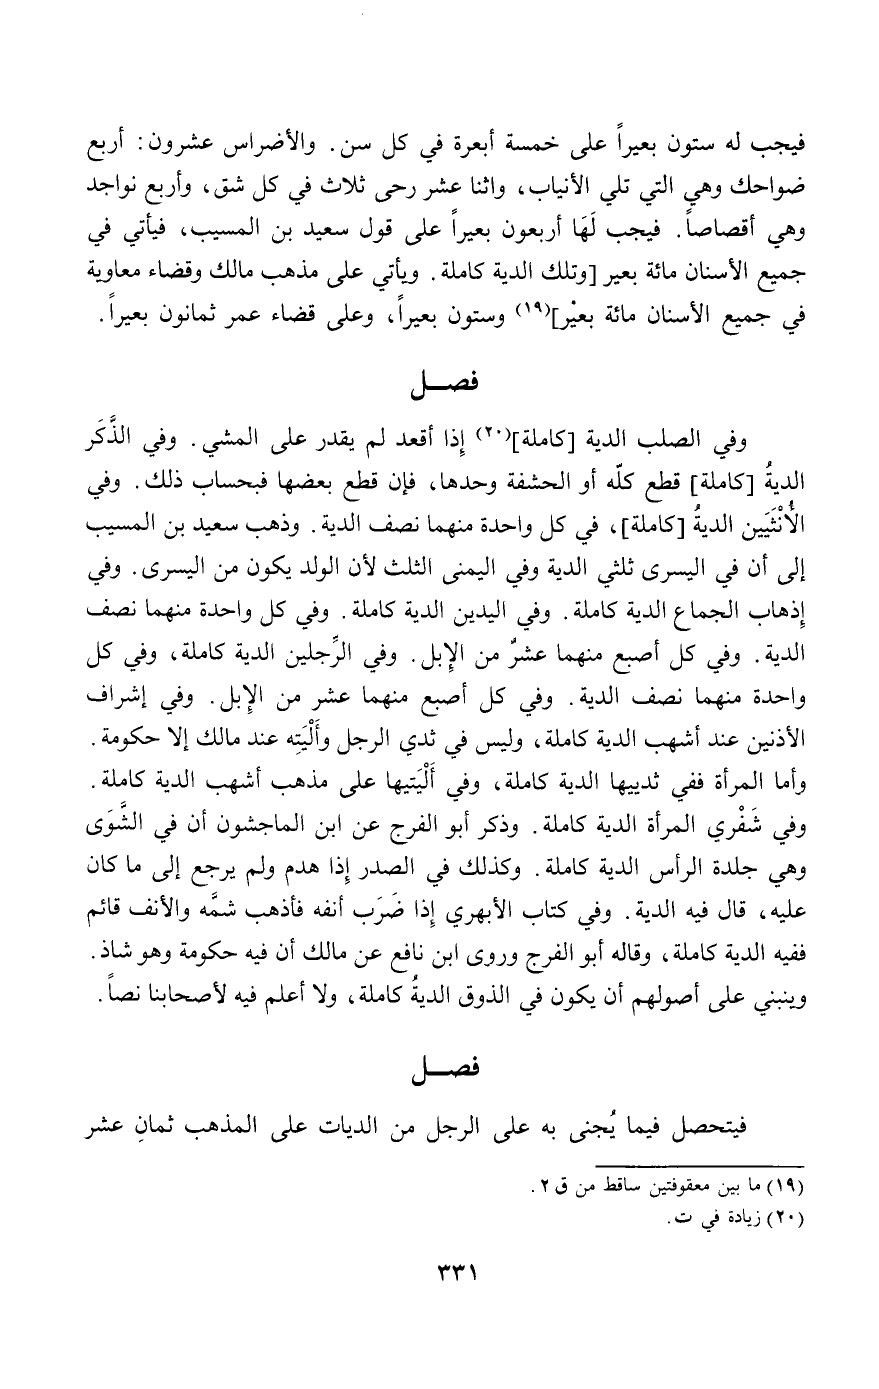 فيجب له ستون بعيراً على خمسة أبعرة في كل سن. والأضراس عشرون: أربع
ضواحك وهي التي تلي الأنياب، واثنا عشر رحى ثلاث في كل شق، وأربع نواجد
وهي أقصاصاً. فيجب لَهَا أربعون بعيراً على قول سعيد بن المسيب، فيأتي في
جميع الأسنان مائة بعير [وتلك الدية كاملة. ويأتي على مذهب مالك وقضاء معاوية
في جميع الأسنان مائة بعيْر](١٩) وستون بعيراً، وعلى قضاء عمر ثمانون بعيراً.
فصــل
وفي الصلب الدية [كاملة](٢٠) إذا أقعد لم يقدر على المشي. وفي الذَّكَر
الديةُ [كاملة] قطع كلّه أو الحشفة وحدها، فإن قطع بعضها فبحساب ذلك. وفي
الأُنْثَيين الديةُ [كاملة]، في كل واحدة منهما نصف الدية. وذهب سعيد بن المسيب
إلى أن في اليسرى ثلثي الدية وفي اليمنى الثلث لأن الولد يكون من اليسرى. وفي
إذهاب الجماع الدية كاملة. وفي اليدين الدية كاملة. وفي كل واحدة منهما نصف
الدية. وفي كل أصبع منهما عشرٌ من الإبل. وفي الرِّجلين الدية كاملة، وفي كل
واحدة منهما نصف الدية. وفي كل أصبع منهما عشر من الإبل. وفي إشراف
الأذنين عند أشهب الدية كاملة، وليس في ثدي الرجل وأَلْيَتِه عند مالك إلا حكومة.
وأما المرأة ففي ثدييها الدية كاملة، وفي أَلْيَتيها على مذهب أشهب الدية كاملة.
وفي شَفْري المرأة الدية كاملة. وذكر أبو الفرج عن ابن الماجشون أن في الشَّوَى
وهي جلدة الرأس الدية كاملة. وكذلك في الصدر إذا هدم ولم يرجع إلى ما كان
عليه، قال فيه الدية. وفي كتاب الأبهري إذا ضَرَب أنفه فأذهب شمَّه والأنف قائم
ففيه الدية كاملة، وقاله أبو الفرج وروى ابن نافع عن مالك أن فيه حكومة وهو شاذ.
وينبني على أصولهم أن يكون في الذوق الديةُ كاملة، ولا أعلم فيه لأصحابنا نصاً.
فصــل
فيتحصل فيما يُجنى به على الرجل من الديات على المذهب ثمانِ عشر
(١٩) ما بين معقوفتين ساقط من ق ٢.
(٢٠) زيادة في ت.
٣٣١